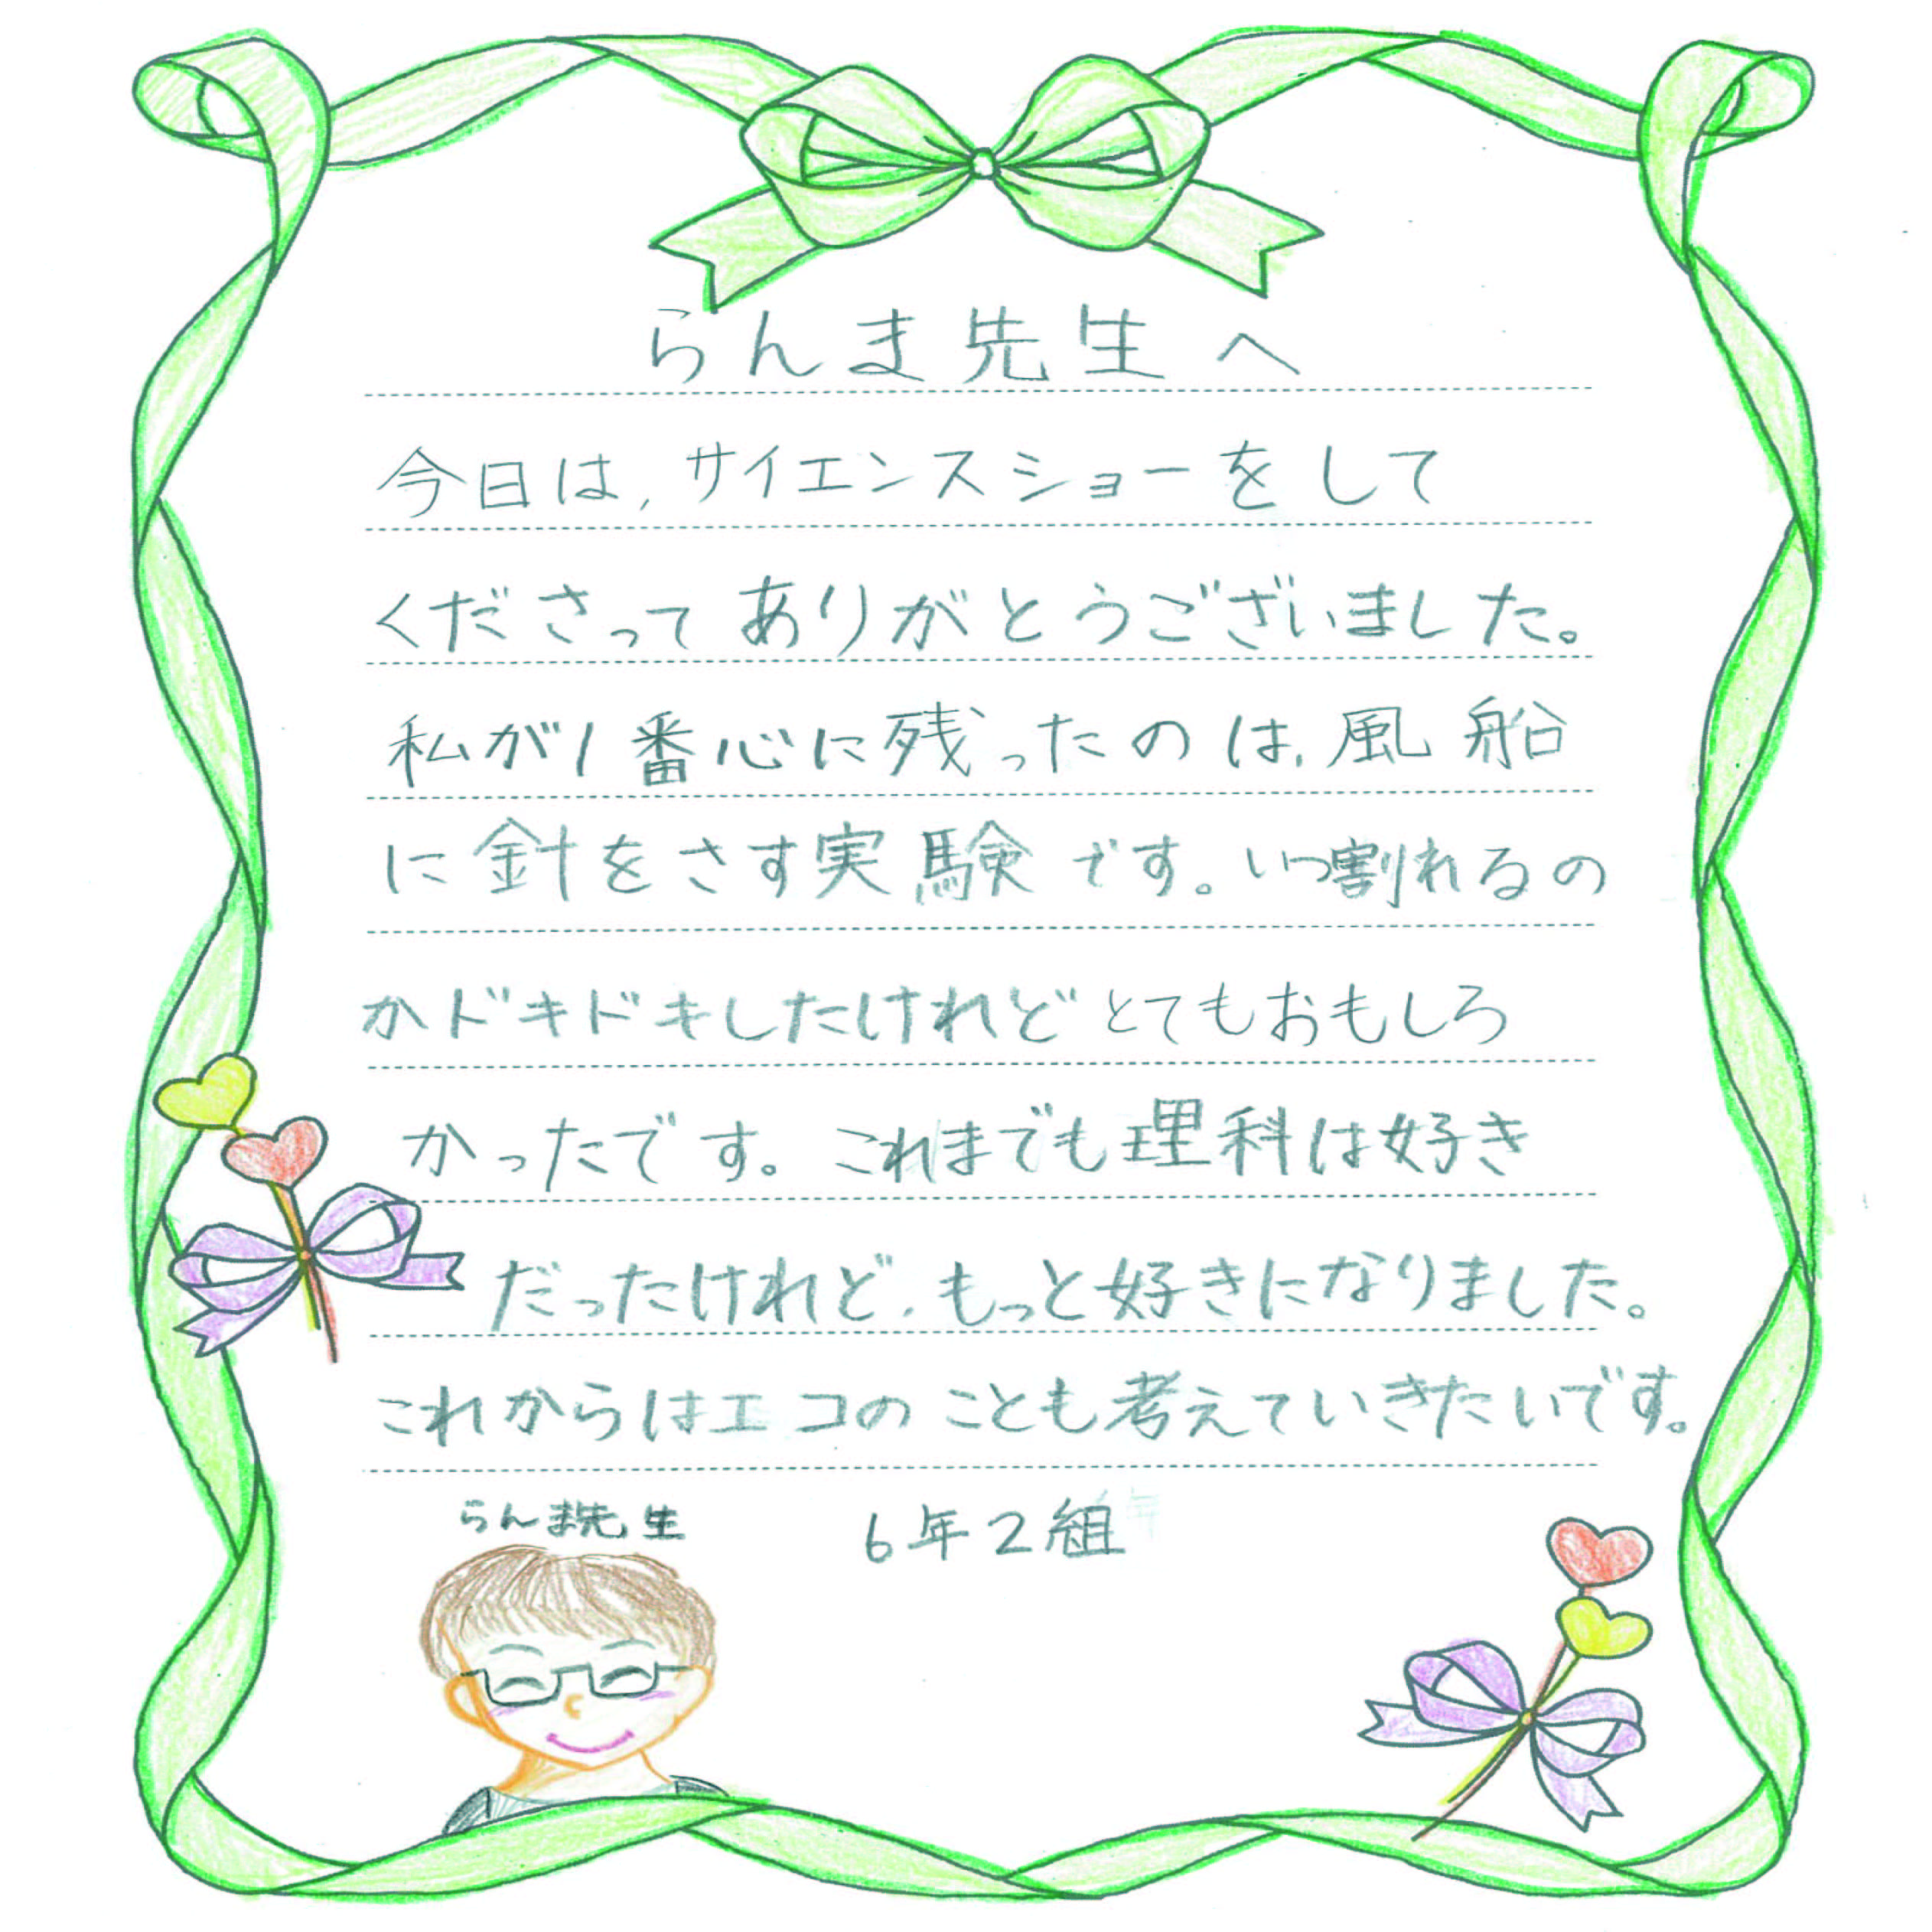 らんま先生へ
今日は,サイエンスショーをして
くださってありがとうございました。
私が1番心に残ったのは,風船
に針をさす実験です。いつ割れるの
かドキドキしたけれどとてもおもしろ
かったです。これまでも理科は好き
だったけれど,もっと好きになりました。
これからはエコのことも考えていきたいです。
らんま先生
6年2組